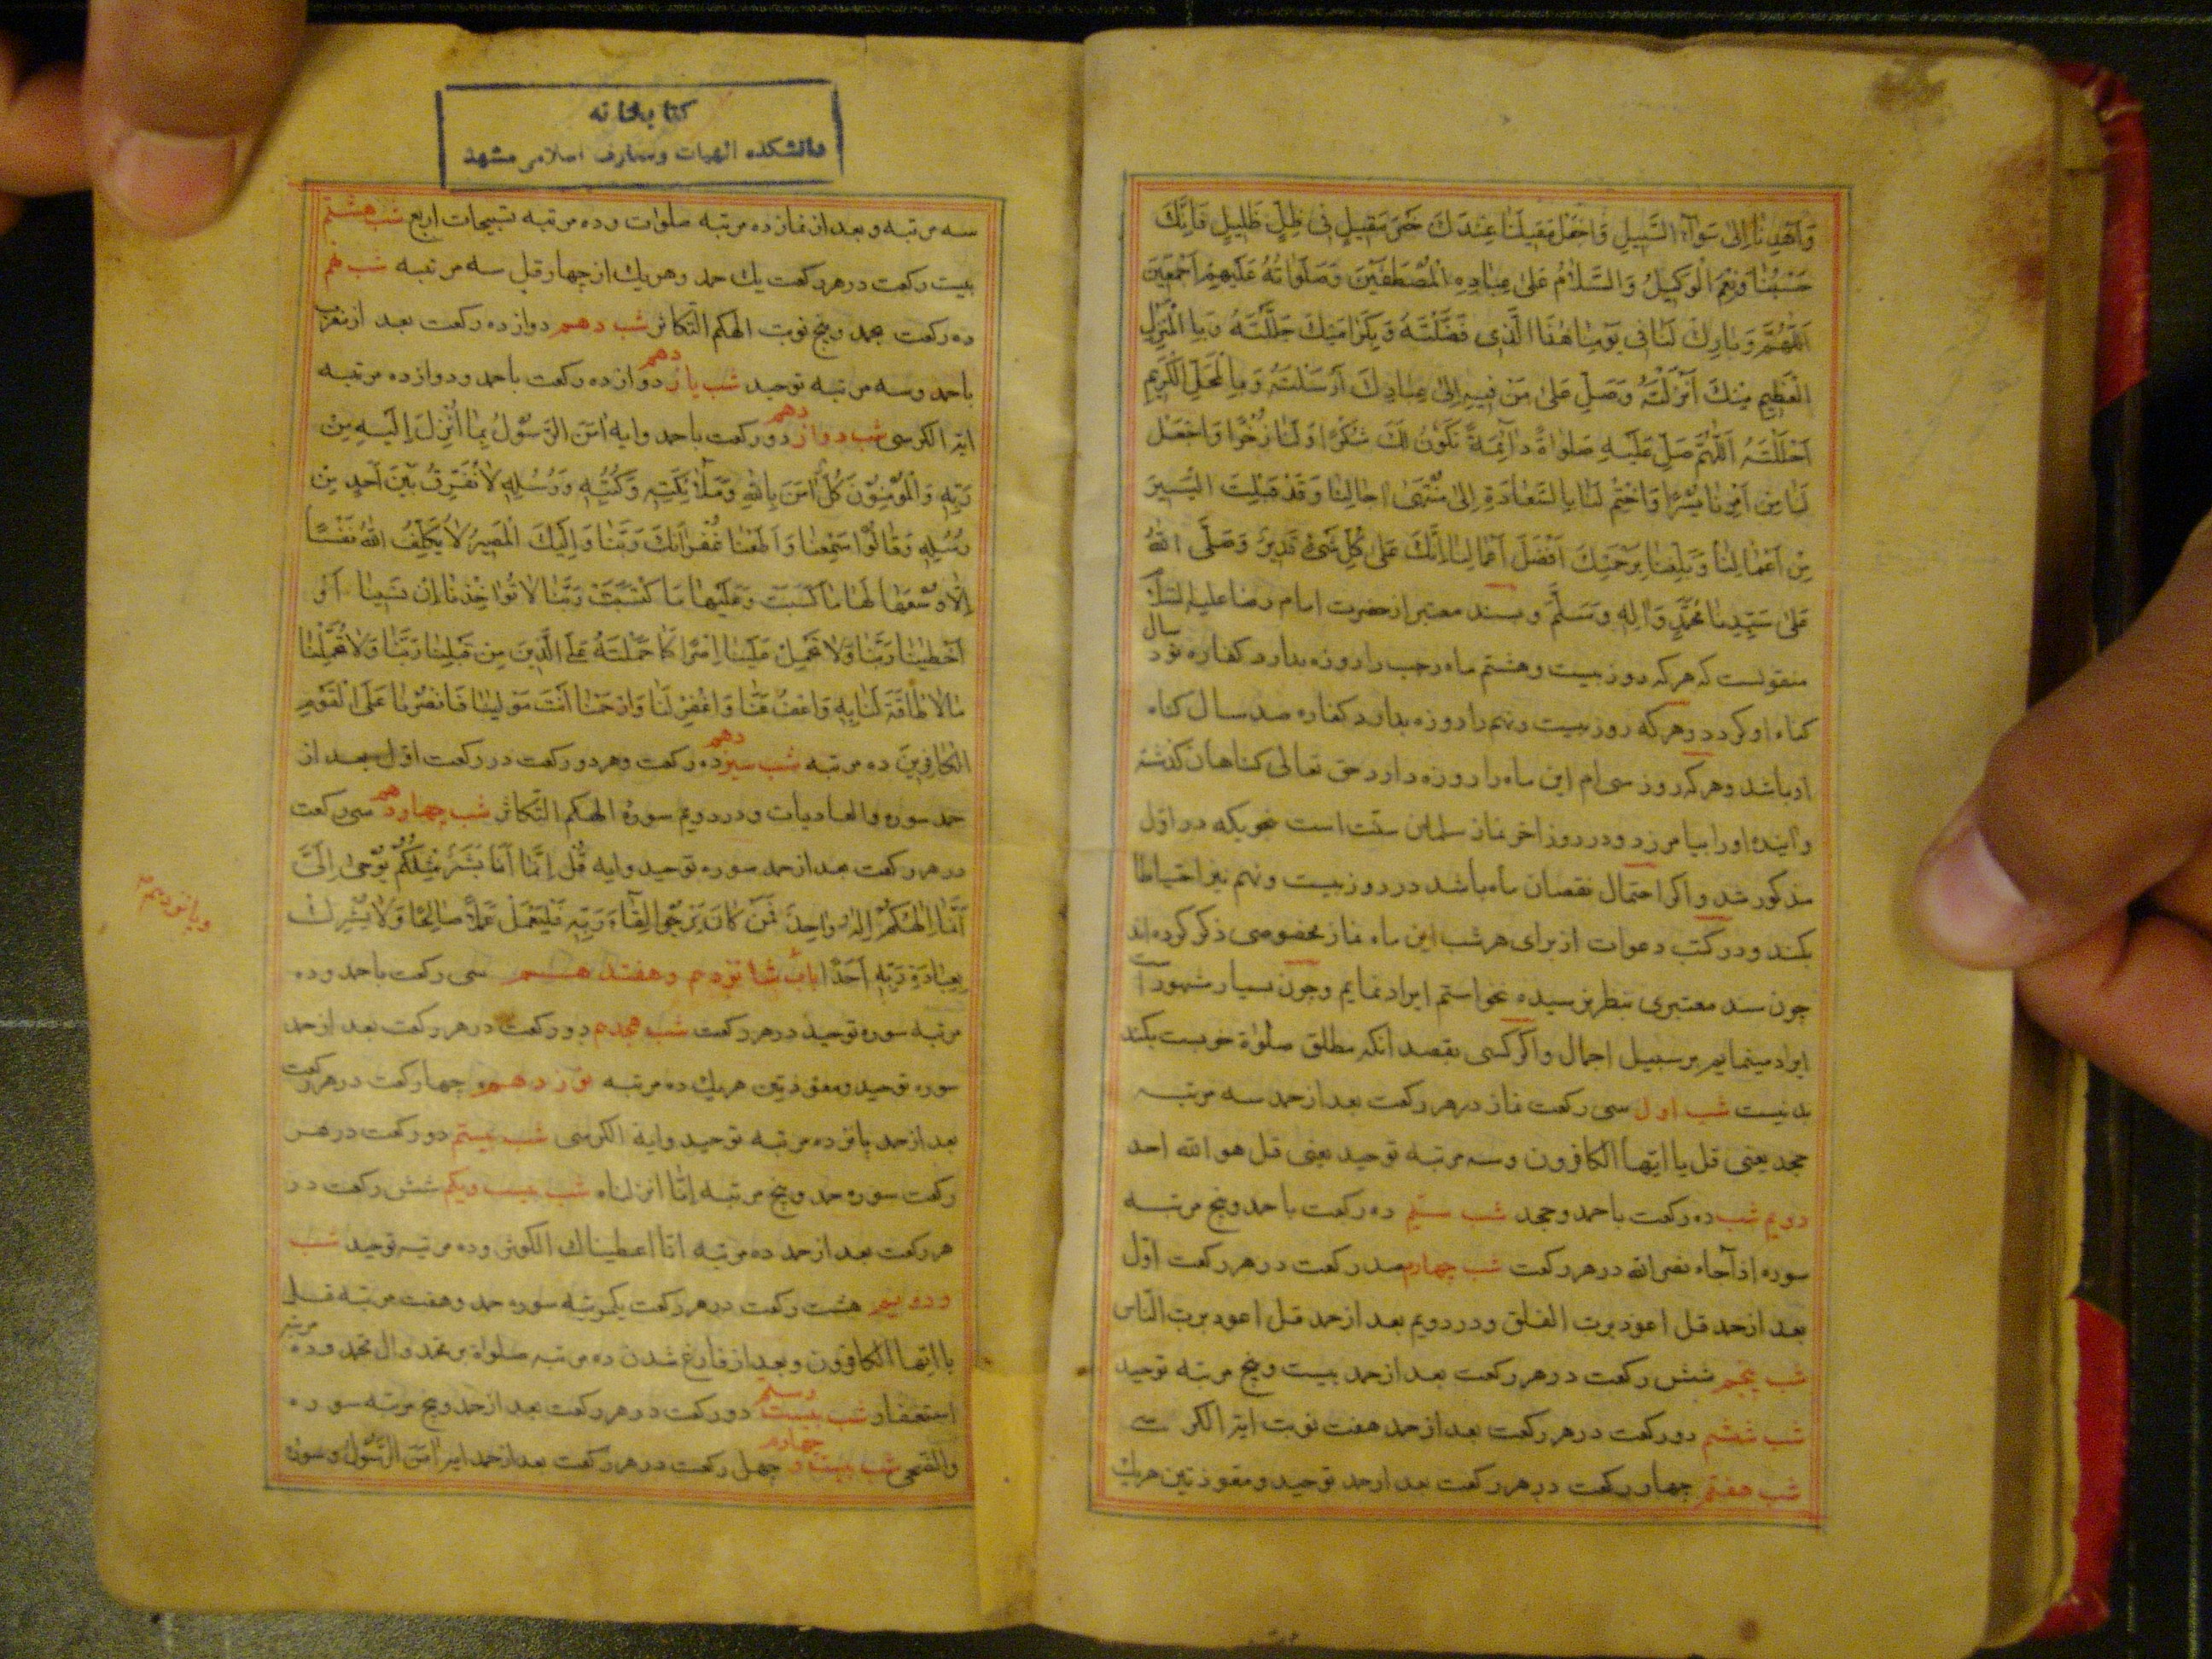 وَاهْدِنَا اِلىٰ سَوَآءِ السَّبِيلِ وَاجْعَلْ مَقِيلَنَا عِنْدَكَ خَيْرَ مَقِيلٍ فِى ظِلٍّ ظَلِيلٍ فَاِنَّكَ
حَسْبُنَا وَنِعْمَ الْوَكِيلُ وَالسَّلَامُ عَلىٰ عِبَادِهِ الْمُصْطَفَيْنَ وَصَلَوَاتُهُ عَلَيْهِمْ اَجْمَعِينَ
اَللّٰهُمَّ وَبَارِكْ لَنَا فِى يَوْمِنَا هٰذَا الَّذِى فَضَّلْتَهُ وَبِكَرَامَتِكَ جَلَّلْتَهُ وَبِالْمَنْزِلِ
الْعَظِيمِ مِنْكَ اَنْزَلْتَهُ وَصَلِّ عَلىٰ مَنْ فِيهِ اِلىٰ عِبَادِكَ اَرْسَلْتَهُ وَبِالْمَحَلِّ الْكَرِيمِ
اَحْلَلْتَهُ اَللّٰهُمَّ صَلِّ عَلَيْهِ صَلوٰاةً دَآئِمَةً تَكُونُ لَكَ شُكْرًا وَلَنَا ذُخْرًا وَاجْعَلْ
لَنَا مِنْ اَمْرِنَا يُسْرًا وَاخْتِمْ لَنَا بِالسَّعَادَةِ اِلىٰ مُنْتَهىٰ اٰجَالِنَا وَقَدْ قَبِلْتَ الْيَسِيرَ
مِنْ اَعْمَالِنَا وَبَلِّغْنَا بِرَحْمَتِكَ اَفْضَلَ اٰمَالِنَا اِنَّكَ عَلىٰ كُلِّ شَىْءٍ قَدِيرٌ وَصَلَّى اللّٰهُ
عَلىٰ سَيِّدِنَا مُحَمَّدٍ وَاٰلِهِ وَسَلَّمَ و بسند معتبر از حضرت امام رضا عليه السّلام
منقولست كه هركه روز بيست و هشتم ماه رجب را روزه بدارد كفاره نود سال
كناه او كردد و هر كه روز بيست و نهم را روزه بدارد كفاره صد سال كناه
او باشد و هر كه روز سى ام اين ماه را روزه دارد حق تعالى كناهان كذشته
و آينده او را بيامرزد و در روز اخر نماز سلمان سنّت است بنحويكه در اوّل
مذكور شد و اكر احتمال نقصان ماه باشد در روز بيست و نهم نيز احتياطا
بكند و در كتب دعوات از براى هر شب اين ماه نماز مخصوصى ذكر كرده اند
چون سند معتبرى بنظر نرسيده نخواستم ايراد نمايم و چون بسيار مشهور است
ايراد مينمايم بر سبيل اجمال و اكر كسى بقصد انكه مطلق صلوٰاة خوبست بكند
بد نيست شب اول سى ركعت نماز در هر ركعت بعد از حمد سه مرتبه
جحد يعنى قل يا ايّها الكافرون و سه مرتبه توحيد يعنى قل هو اللّه احد
دويم شب ده ركعت با حمد و جحد شب سيّم ده ركعت با حمد و پنج مرتبه
سوره اذا جاء نصر اللّه در هر ركعت شب چهارم صد ركعت در هر ركعت اوّل
بعد از حمد قل اعوذ بربّ الفلق و در دويم بعد از حمد قل اعوذ بربّ النّاس
شب پنجم شش ركعت در هر ركعت بعد از حمد بيست و پنج مرتبه توحيد
شب ششم دو ركعت در هر ركعت بعد از حمد هفت نوبت اية الكرسى
شب هفتم چهار ركعت در هر ركعت بعد از حمد توحيد و معوّذتين هريك
كتابخانه
دانشكده الهيات و معارف اسلامى مشهد
سه مرتبه و بعد از نماز ده مرتبه صلوات و ده مرتبه تسبيحات اربع شب هشتم
بيست ركعت در هر ركعت يك حمد و هر يك از چهار قل سه مرتبه شب نهم
ده ركعت بحمد و پنج نوبت الهكم التّكاثر شب دهم دوازده ركعت بعد از مغرب
با حمد و سه مرتبه توحيد شب يازدهم دوازده ركعت با حمد و دوازده مرتبه
اية الكرسى شب دوازدهم دو ركعت با حمد و ايه اٰمَنَ الرَّسُولُ بِمَا اُنْزِلَ اِلَيْهِ مِنْ
رَبِّهِ وَالْمُؤْمِنُونَ كُلٌّ اٰمَنَ بِاللّٰهِ وَمَلٰائِكَتِهِ وَكُتُبِهِ وَرُسُلِهِ لَا نُفَرِّقُ بَيْنَ اَحَدٍ مِنْ
رُسُلِهِ وَقَالُوا سَمِعْنَا وَاَطَعْنَا غُفْرَانَكَ رَبَّنَا وَاِلَيْكَ الْمَصِيرُ لَا يُكَلِّفُ اللّٰهُ نَفْسًا
اِلَّا وُسْعَهَا لَهَا مَا كَسَبَتْ وَعَلَيْهَا مَا كْتَسَبَتْ رَبَّنَا لَا تُؤَاخِذْنَا اِنْ نَسِينَا اَوْ
اَخْطَيْنَا رَبَّنَا وَلَا تَحْمِلْ عَلَيْنَا اِصْرًا كَمَا حَمَلْتَهُ عَلَى الَّذِينَ مِنْ قَبْلِنَا رَبَّنَا وَلَا تُحَمِّلْنَا
مَا لَا طَاقَةَ لَنَا بِهِ وَاعْفُ عَنَّا وَاغْفِرْ لَنَا وَارْحَمْنَا اَنْتَ مَوْلٰينَا فَانْصُرْنَا عَلَى الْقَوْمِ
الْكَافِرِينَ ده مرتبه شب سيزدهم ده ركعت و هر دو ركعت در ركعت اوّل بعد از
حمد سوره والعاديات و در دويم سورۀ الهكم التّكاثر شب چهاردهم سى ركعت
در هر ركعت بعد از حمد سوره توحيد و ايه قُلْ اِنَّمَا اَنَا بَشَرٌ مِثْلُكُمْ يُوحىٰ اِلَىَّ
اَنَّمَا اِلٰهُكُمْ اِلٰهٌ وَاحِدٌ فَمَنْ كَانَ يَرْجُوا لِقَآءَ رَبِّهِ فَلْيَعْمَلْ عَمَلًا صَالِحًا وَلَا يُشْرِكْ
بِعِبَادَةِ رَبِّهِ اَحَدًا شانزدهم و هفتدهم سى ركعت با حمد و ده
مرتبه سوره توحيد در هر ركعت شب هجدهم دو ركعت در هر ركعت بعد از حمد
سوره توحيد و معوّذتين هر يك ده مرتبه نوزدهم چهار ركعت در هر ركعت
بعد از حمد پانزده مرتبه توحيد و اية الكرسى شب بيستم دو ركعت در هر
ركعت سوره حمد و پنج مرتبه اِنّا انزلناه شب بيست و يكم شش ركعت در
هر ركعت بعد از حمد ده مرتبه انّا اعطيناك الكوثر و ده مرتبه توحيد شب
و دويم هشت ركعت در هر ركعت يكمرتبه سوره حمد و هفت مرتبه قل
يا ايّها الكافرون و بعد از فارغ شدن ده مرتبه صلواة بر محمّد و ال محمّد و ده مرتبه
استغفار شب بيست و سيّم دو ركعت در هر ركعت بعد از حمد و پنج مرتبه سوره
والضّحى شب بيست و چهارم چهل ركعت در هر ركعت بعد از حمد اية اٰمَنَ الرَّسُولُ و سوره
و پانزدهم